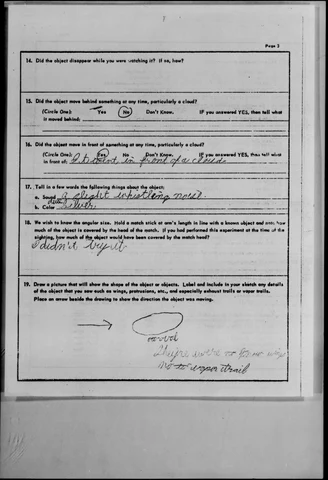 Page 3
14. Did the object disappear while you were watching it? If so, how?
15. Did the object move behind something at any time, particularly a cloud?
(Circle One): Yes No Don't Know. IF you answered YES, then tell what
it moved behind:
16. Did the object move in front of something at any time, particularly a cloud?
(Circle One): Yes No Don't Know. IF you answered YES, then tell what
in front of: in front of a cloud.
17. Tell in a few words the following things about the object:
a. Sound a slight whistling noise
b. Color dull silver
18. We wish to know the angular size. Hold a match stick at arm's length in line with a known object and note how
much of the object is covered by the head of the match. If you had performed this experiment at the time of the
sighting, how much of the object would have been covered by the match head?
I didn't try it.
19. Draw a picture that will show the shape of the object or objects. Label and include in your sketch any details
of the object that you saw such as wings, protrusions, etc., and especially exhaust trails or vapor trails.
Place an arrow beside the drawing to show the direction the object was moving.
There were no
no vapor trail